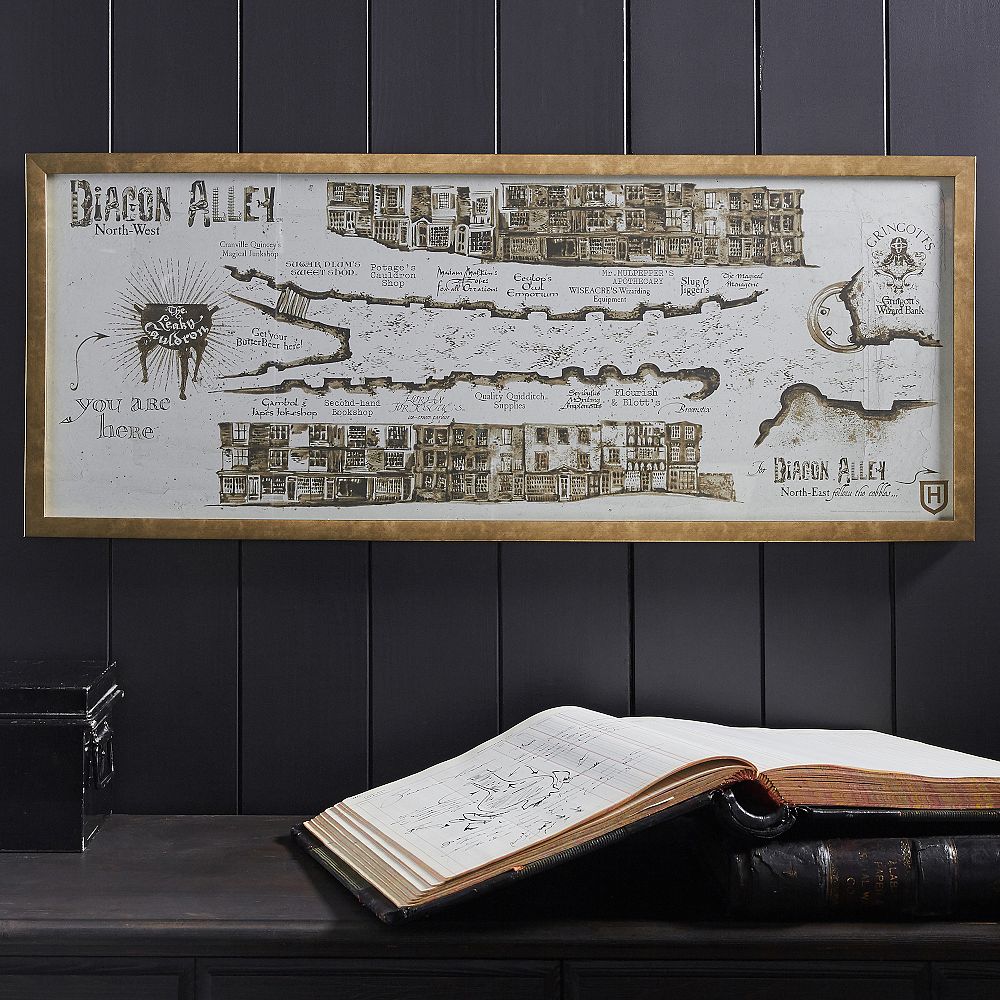 DIAGON ALLEY
North-West
Granville Quincey's
Magical Junkshop
SUGARPLUM'S
SWEETSHOP
Potage's
Cauldron
Shop
Madam Malkin's
Robes
for all Occasions!
Eeylop's
Owl
Emporium
Mr. MULPEPPER'S
APOTHECARY
WISEACRE'S Wizarding
Equipment
Slug &
Jigger's
The Magical
Menagerie
GRINGOTTS
Gringott's
Wizard Bank
The
Leaky
Cauldron
Get your
ButterBeer here!
YOU ARE
HERE
Gambol &
Japes Jokeshop
Second-hand
Bookshop
ice-cream parlour
Quality Quidditch
Supplies
Writing
Flourish
& Blott's
Broomstix
For DIAGON ALLEY
North-East follow the cobbles...
H